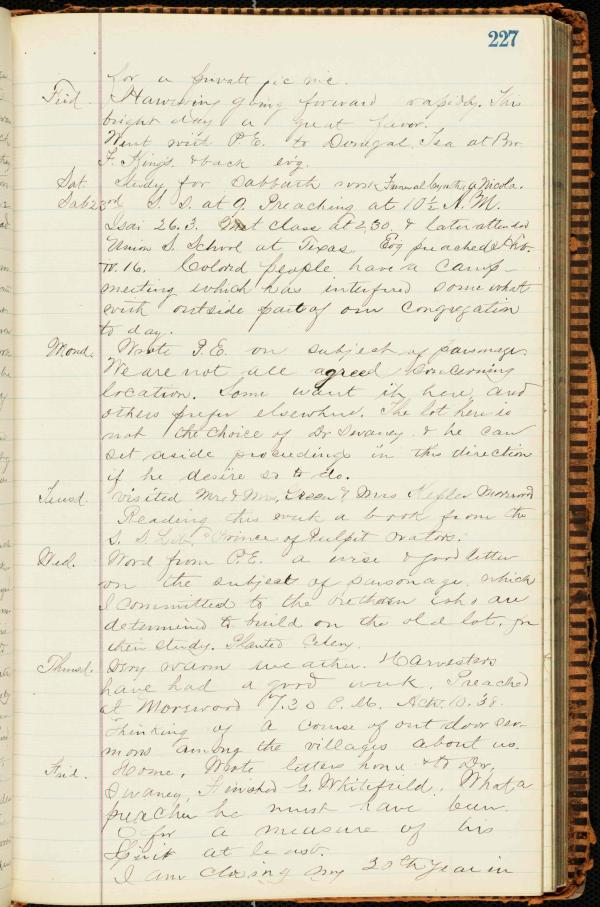 227
for a private picnic.
Frid. Harvesting going forward rapidly. This
bright day a great favor.
Went with P.E. to Donegal, Tea at Bro.
F. Kings. & back evg.
Sat. Study for Sabbath work Funeral Cynthia Nicola.
Sab 23rd S. S. at 9. Preaching at 10½ A. M.
Isai 26.3. class at 2,30, & later attended
Union S. School at Texas. Evg preached
16. Colored people have a camp-
meeting which has interfered somewhat
with outside part of our congregation
to day.
Mond. Wrote P.E. on subject of parsonage.
We are not all agreed concerning
location. Some want it here, and
others prefer elsewhere. The lot here is
not the choice of Dr Swaney & he can
set aside proceedings in this direction
if he desire so to do.
Tuesd. Visited Mr & Mrs. & Mrs Kepler Morewood
Reading this week a book from the
S. S. Lib. "Prince of Pulpit Orators.
Wed. Word from P.E. a wise & good letter
on the subject of parsonage, which
I committed to the brethren who are
determined to build on the old lot, for
their study. Planted Celery.
Thursd. Very warm weather. Harvesters
have had a good week. Preached
at Morewood 7.30 P.M. Act. 10.38.
Thinking of a course of out door ser-
mons among the villages about us.
Frid. Home, Wrote letters home & to Dr.
Swaney, Finished G. Whitefield. What a
preacher he must have been.
O for a measure of his
Spirit at least.
I am closing my 30th year in